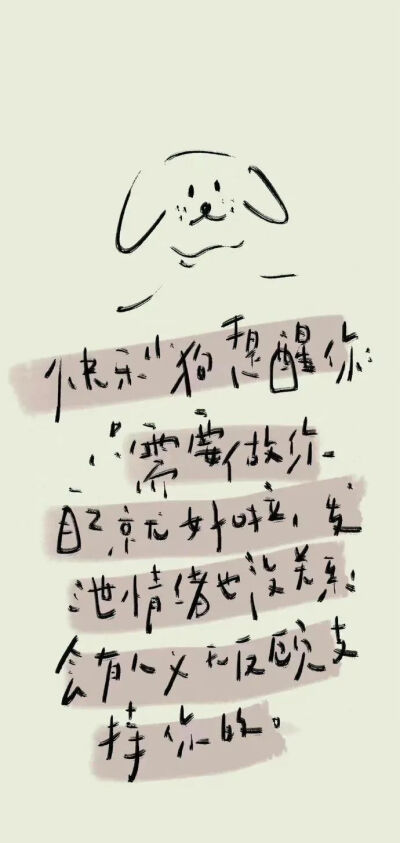 快乐小狗提醒你:
只需要做你
自己就好啦,发
泄情绪也没关系,
会有人义无反顾支
持你的。